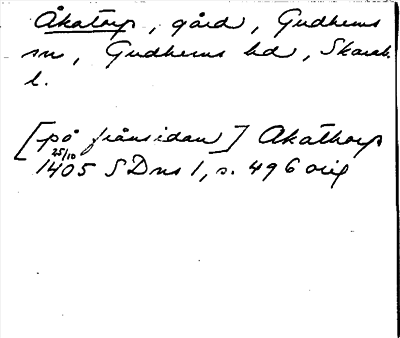 Åkatorp, gård, Gudhems
sn, Gudhems hd, Skarab.
l.
[på frånsidan] Akathorp
25/10
1405 SDns 1, s. 496 orig